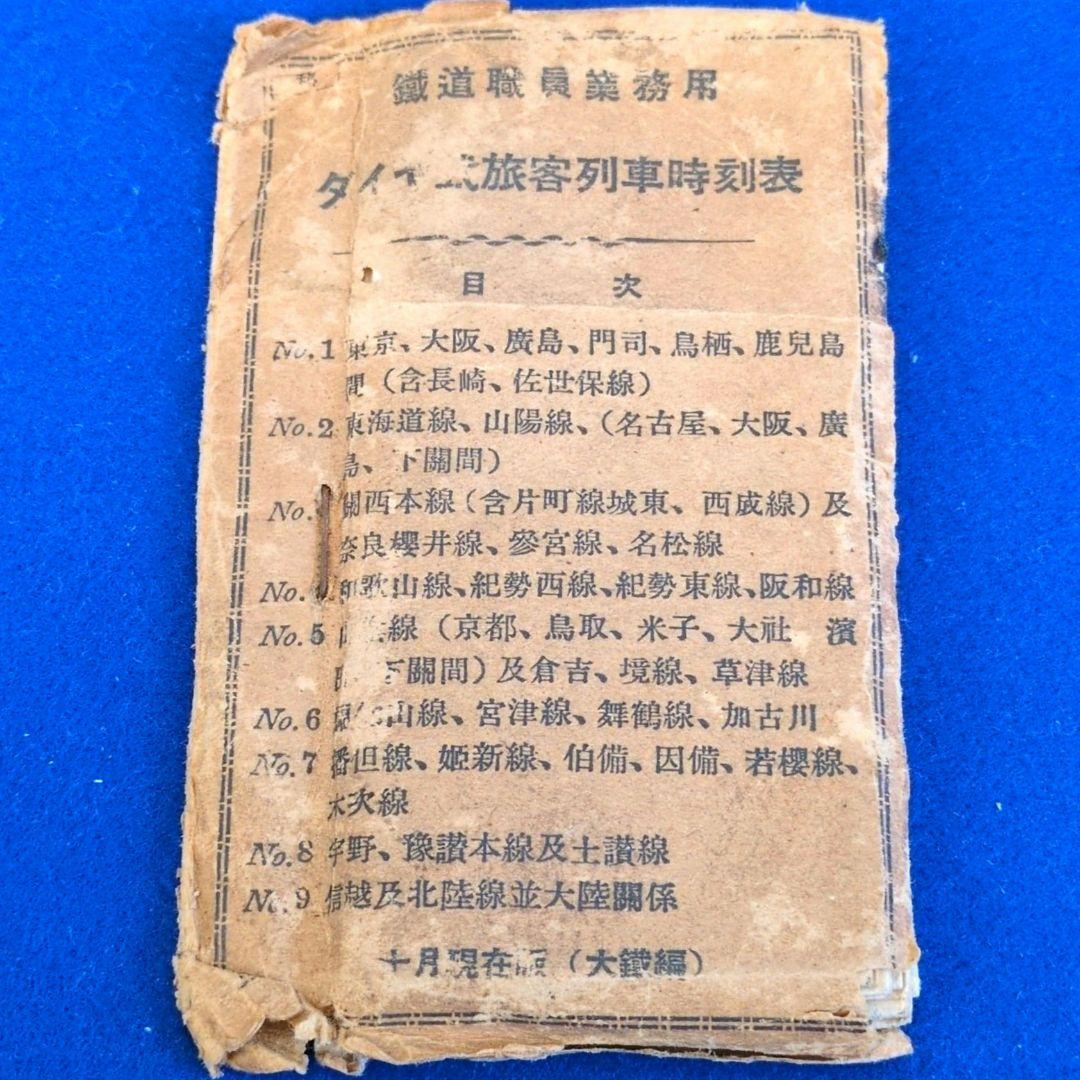 鐵道職員業務用
ダイ 式旅客列車時刻表
目 次
No.1 東京、大阪、廣島、門司、鳥栖、鹿兒島
間(含長崎、佐世保線)
No.2 東海道線、山陽線、(名古屋、大阪、廣
島、下關間)
No. 關西本線(含片町線城東、西成線)及
奈良櫻井線、參宮線、名松線
No. 和歌山線、紀勢西線、紀勢東線、阪和線
No.5 線(京都、鳥取、米子、大社 濱
下關間)及倉吉、境線、草津線
No.6 山線、宮津線、舞鶴線、加古川
No.7 播但線、姬新線、伯備、因備、若櫻線、
木次線
No.8 宇野、豫讃本線及土讃線
No.9 信越及北陸線並大陸關係
十月現在版(大鐵編)